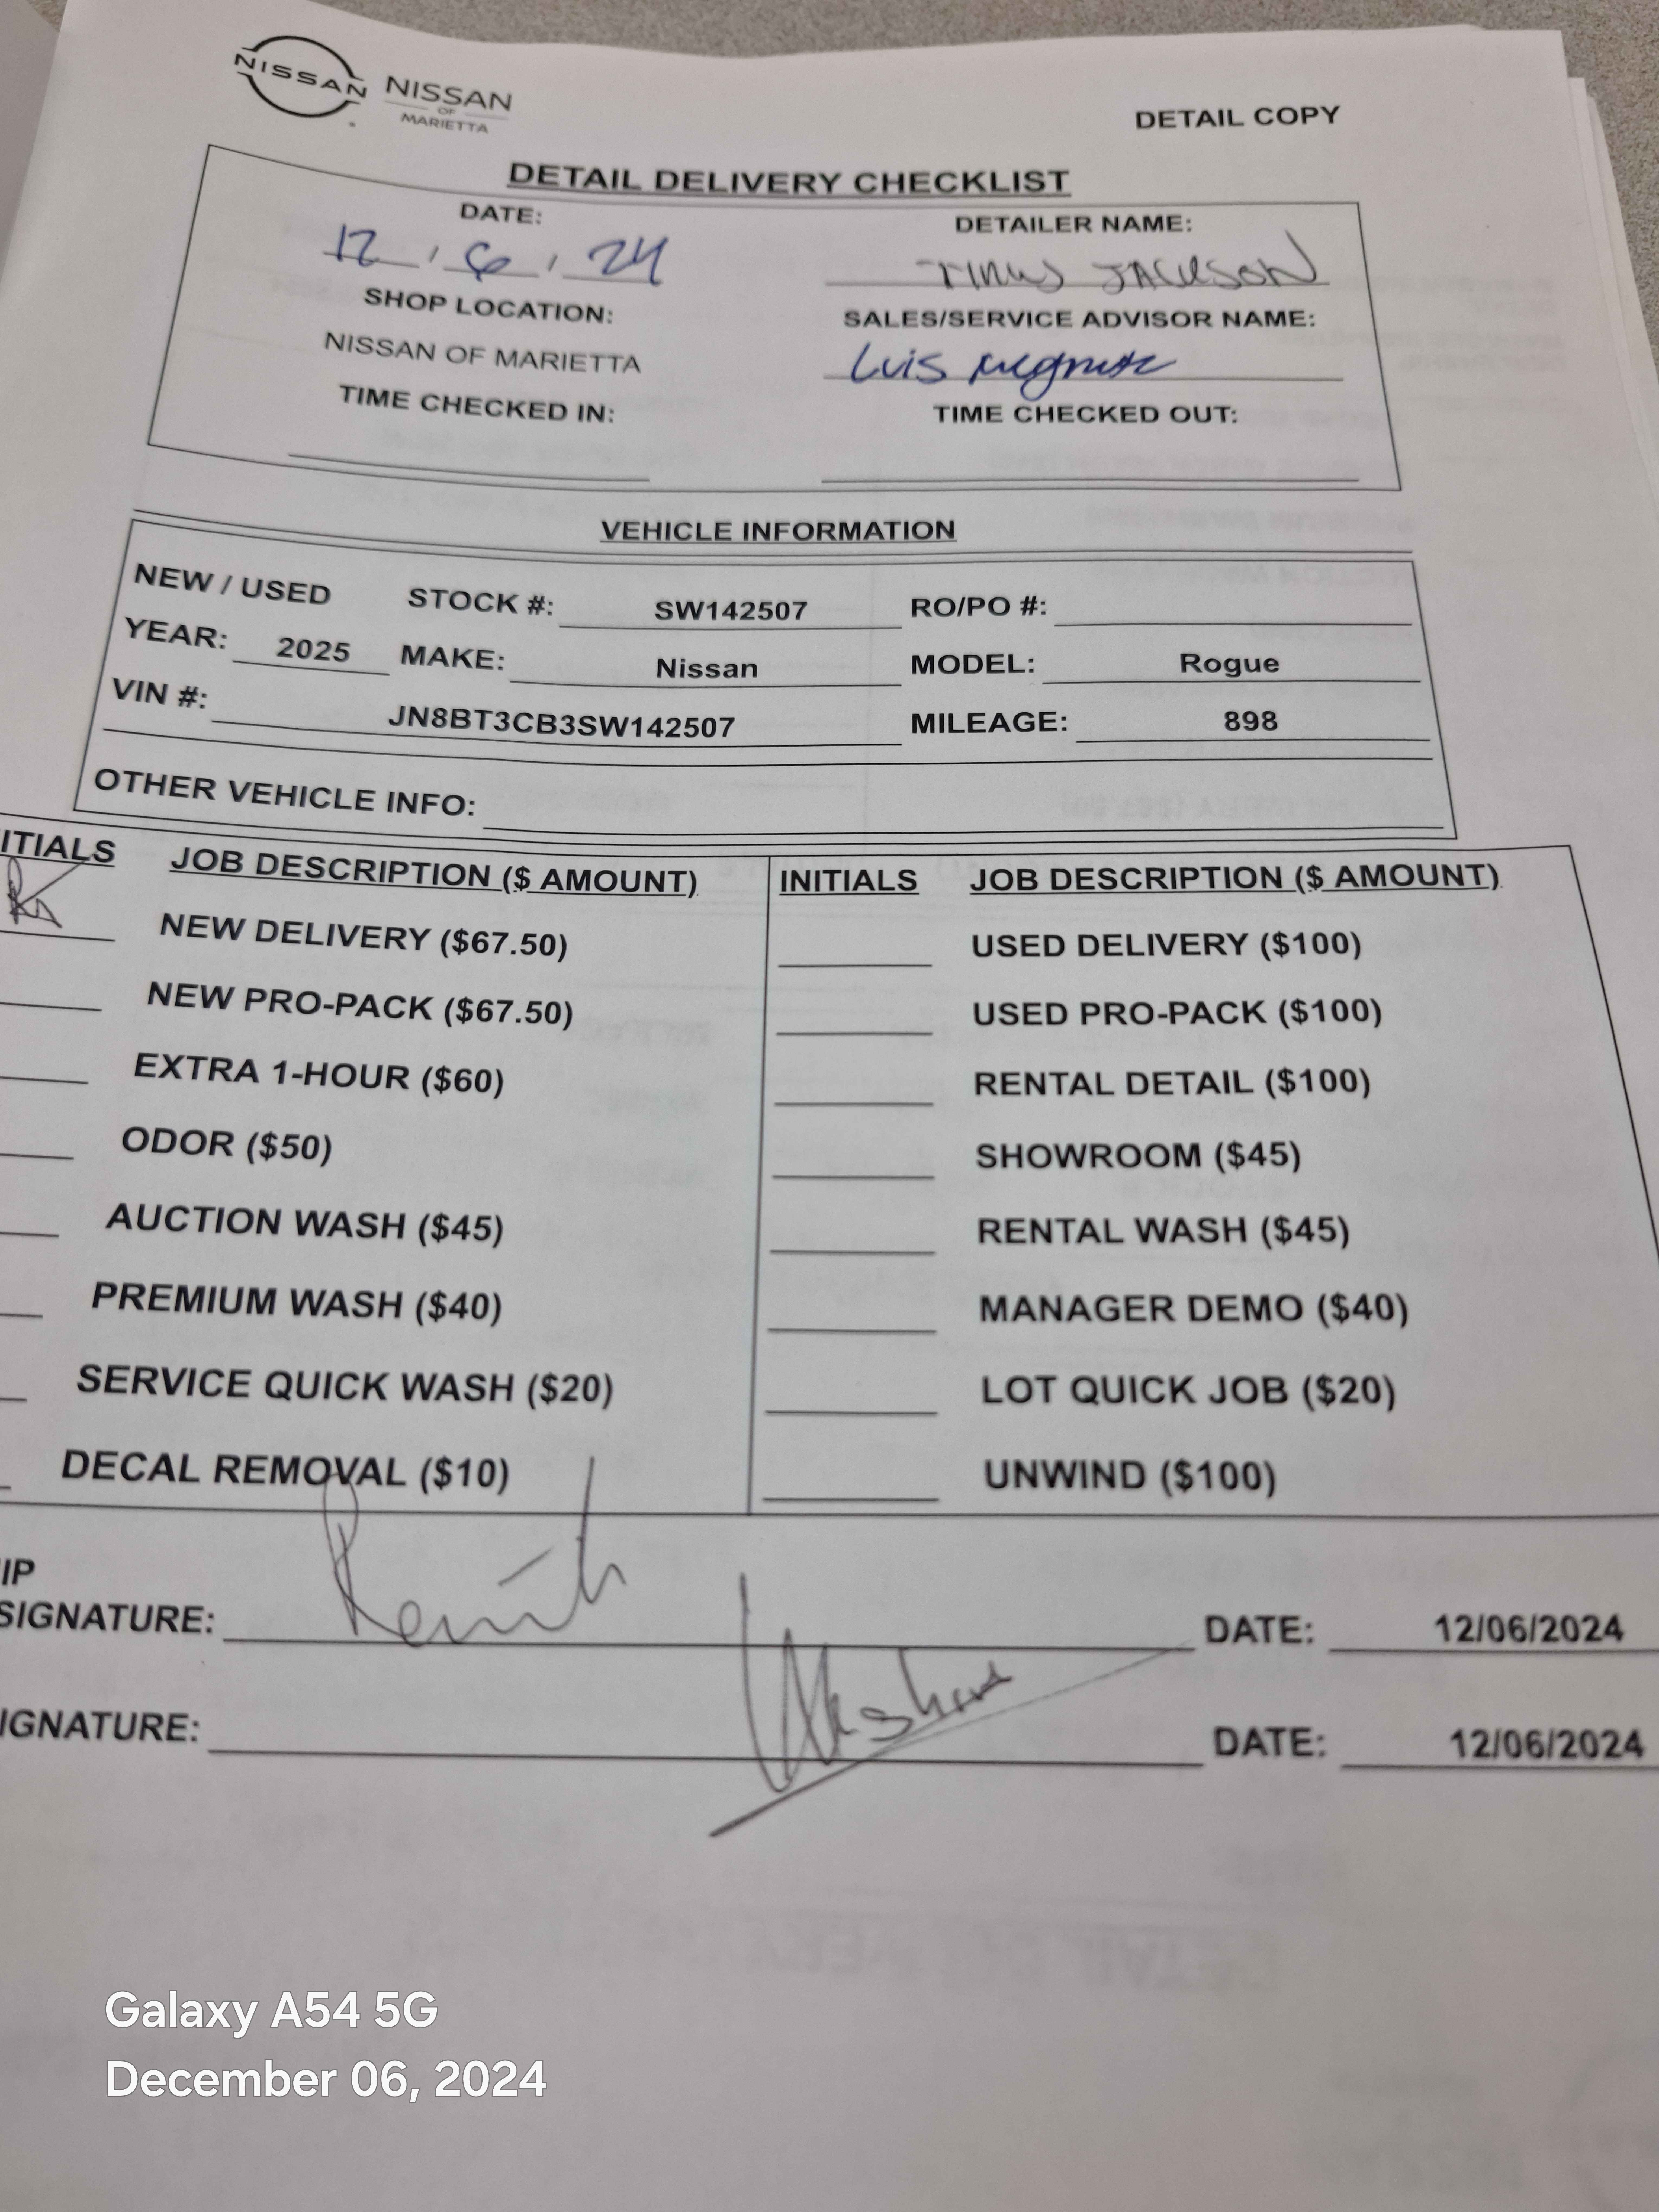 NISSAN NISSAN
OF
MARIETTA
DETAIL COPY
DETAIL DELIVERY CHECKLIST
DATE: DETAILER NAME:
12 / 6 / 24 JACKSON
SHOP LOCATION: SALES/SERVICE ADVISOR NAME:
NISSAN OF MARIETTA Luis
TIME CHECKED IN: TIME CHECKED OUT:
VEHICLE INFORMATION
NEW / USED STOCK #: SW142507 RO/PO #:
YEAR: 2025 MAKE: Nissan MODEL: Rogue
VIN #: JN8BT3CB3SW142507 MILEAGE: 898
OTHER VEHICLE INFO:
ITIALS JOB DESCRIPTION ($ AMOUNT) INITIALS JOB DESCRIPTION ($ AMOUNT)
NEW DELIVERY ($67.50) USED DELIVERY ($100)
NEW PRO-PACK ($67.50) USED PRO-PACK ($100)
EXTRA 1-HOUR ($60) RENTAL DETAIL ($100)
ODOR ($50) SHOWROOM ($45)
AUCTION WASH ($45) RENTAL WASH ($45)
PREMIUM WASH ($40) MANAGER DEMO ($40)
SERVICE QUICK WASH ($20) LOT QUICK JOB ($20)
DECAL REMOVAL ($10) UNWIND ($100)
IP
SIGNATURE: DATE: 12/06/2024
IGNATURE: DATE: 12/06/2024
Galaxy A54 5G
December 06, 2024